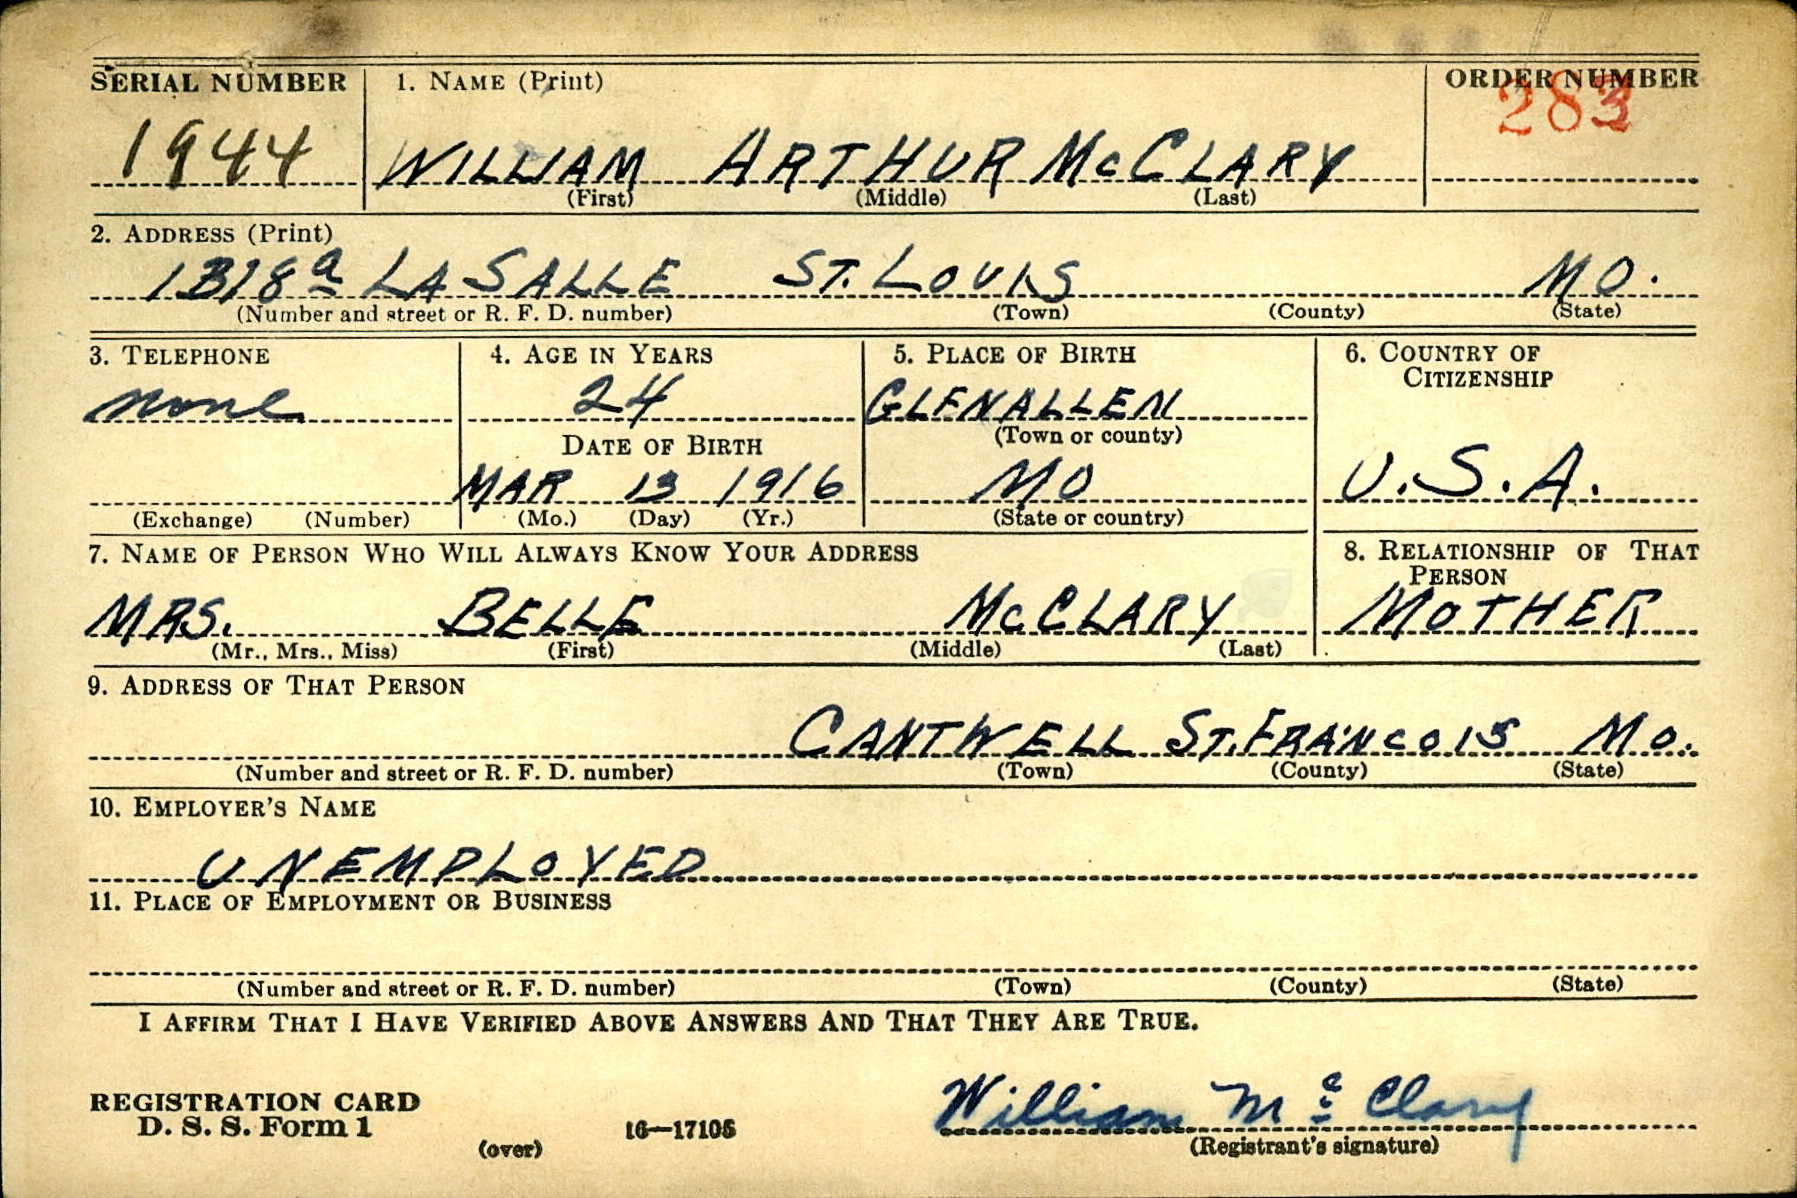 SERIAL NUMBER 1. NAME (Print) ORDER NUMBER
283
1944 WILLIAM ARTHUR McCLARY
(First) (Middle) (Last)
2. ADDRESS (Print)
1318a LA SALLE ST. LOUIS MO.
(Number and street or R. F. D. number) (Town) (County) (State)
3. TELEPHONE 4. AGE IN YEARS 5. PLACE OF BIRTH 6. COUNTRY OF
CITIZENSHIP
none 24 GLENALLEN
(Town or county)
DATE OF BIRTH
MAR 13 1916 MO U.S.A.
(Exchange) (Number) (Mo.) (Day) (Yr.) (State or country)
7. NAME OF PERSON WHO WILL ALWAYS KNOW YOUR ADDRESS 8. RELATIONSHIP OF THAT
PERSON
MRS. BELLE McCLARY MOTHER
(Mr., Mrs., Miss) (First) (Middle) (Last)
9. ADDRESS OF THAT PERSON
CANTWELL ST. FRANCOIS MO.
(Number and street or R. F. D. number) (Town) (County) (State)
10. EMPLOYER'S NAME
UNEMPLOYED
11. PLACE OF EMPLOYMENT OR BUSINESS
(Number and street or R. F. D. number) (Town) (County) (State)
I AFFIRM THAT I HAVE VERIFIED ABOVE ANSWERS AND THAT THEY ARE TRUE.
REGISTRATION CARD
D. S. S. Form 1 16—17105 William McClary
(over) (Registrant's signature)